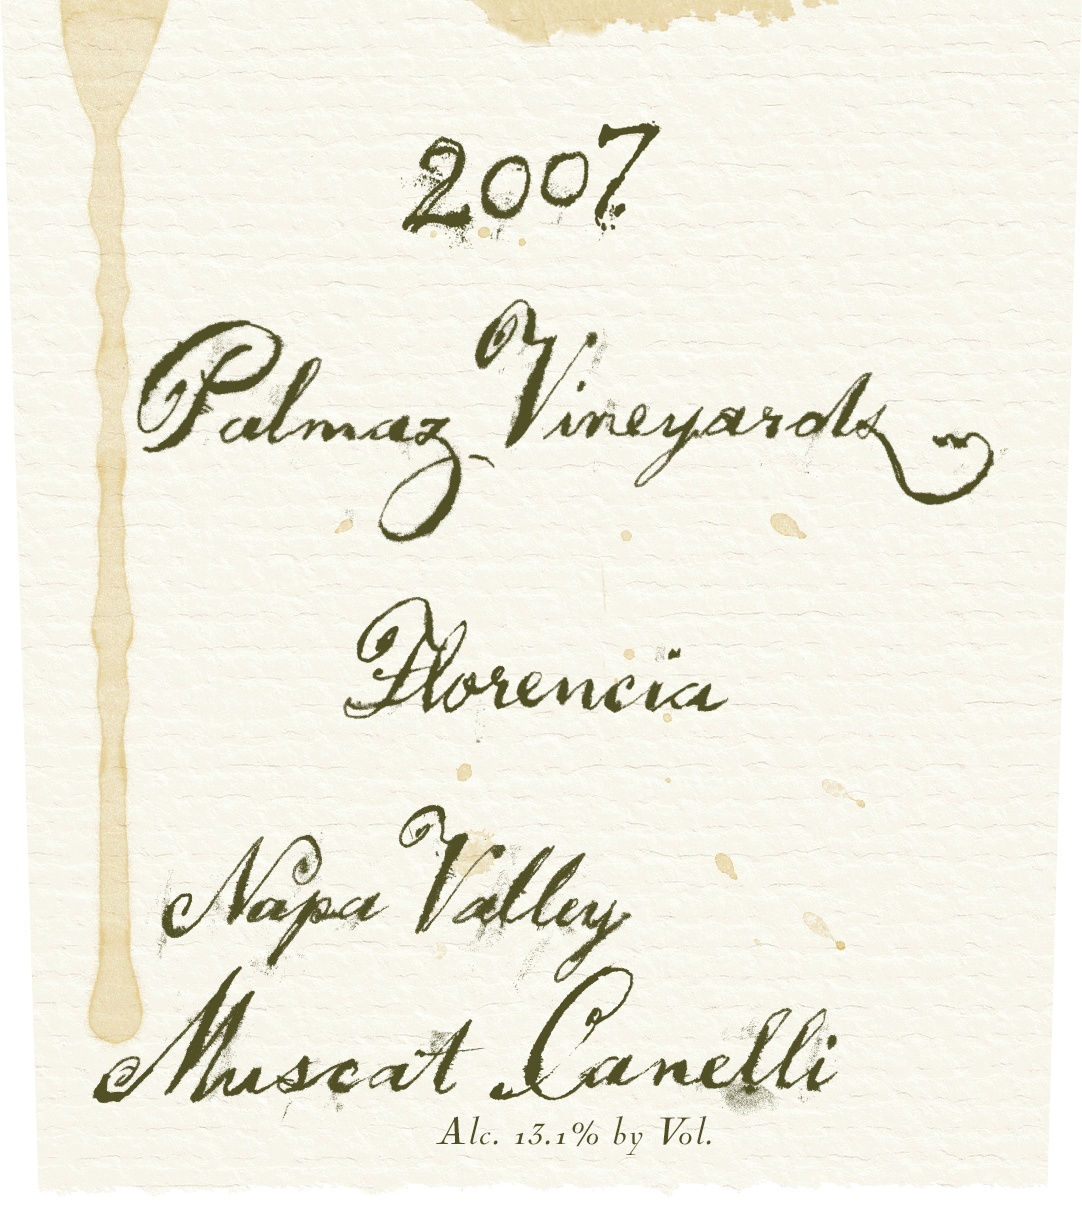 2007
Palmaz Vineyards
Florencia
Napa Valley
Muscat Canelli
Alc. 13.1% by Vol.